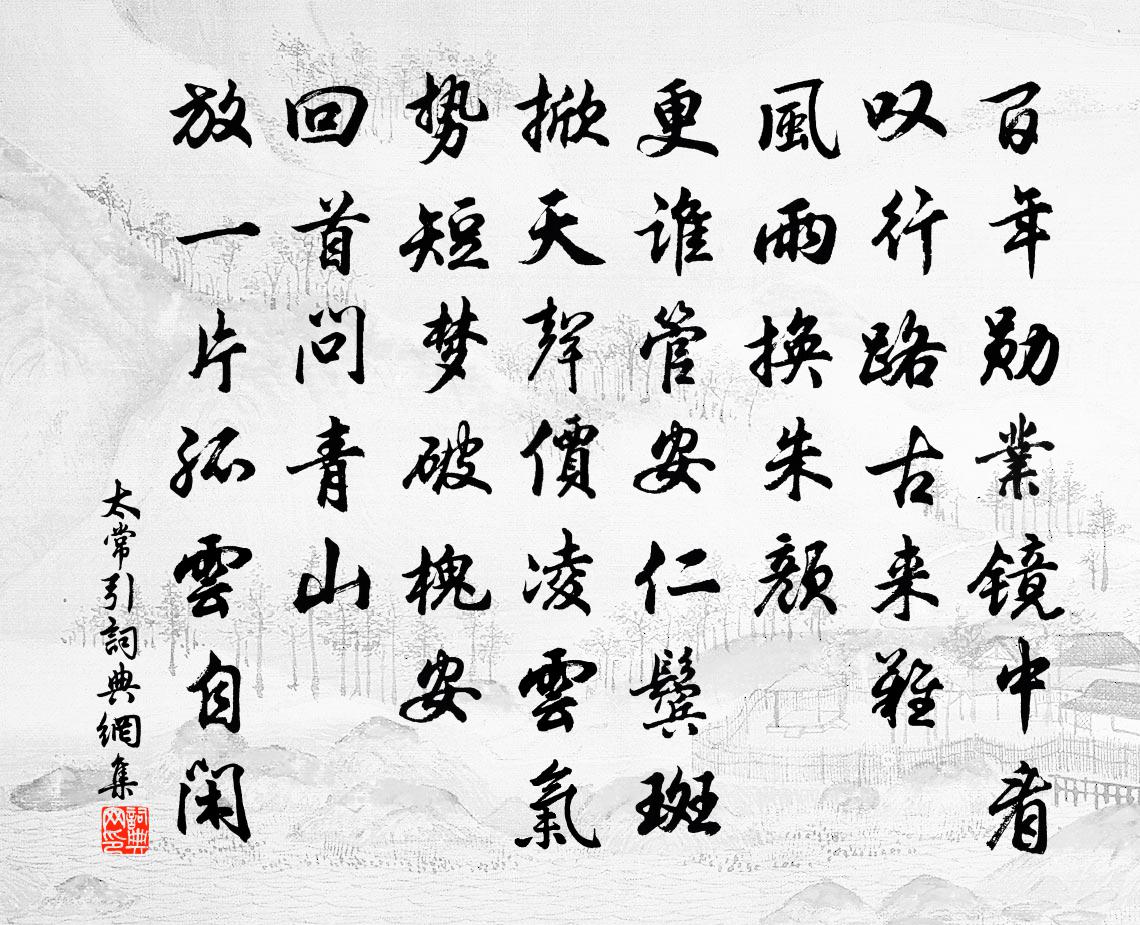 百年勋業镜中看
叹行路古来難
風雨換朱顔
更谁管安仁鬓斑
掀天聲價凌雲氣
势短梦破槐安
回首問青山
放一片孤雲自闲
太常引詞典網集
詞典网印